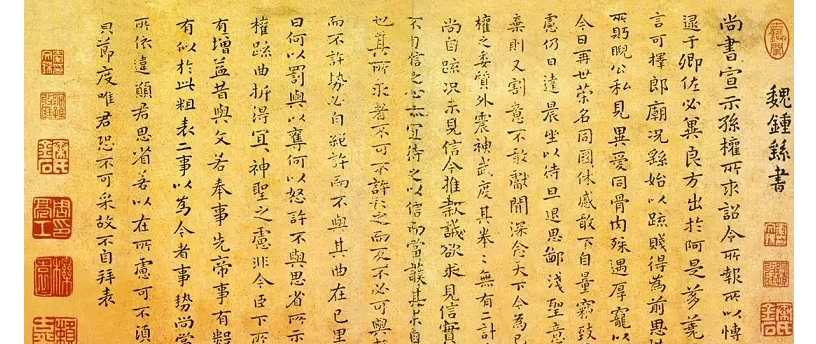 魏鍾繇書
尚書宣示孫權所求詔令所報所以博
逮于卿佐必冀良方出於阿是芻蕘
言可擇郎廟況繇始以疏賤得為前恩
所眄睨公私見異愛同骨肉殊遇厚寵以
今日再世榮名同國休慼敢不自量竊致
慮仍日達晨坐以待旦退思鄙淺聖意
棄則又割意不敢獻聞深念天下今為已
權之委質外震神武度其拳々無有二計
尚自疏況未見信今推款誠欲求見信實
不自信之心亦宜待之以信而當護其未自
也其所求者不可不許許之而反不必可與
而不許勢必自絕許而不與其曲在己里
曰何以罰與以奪何以怒許不與思省所示
權疏曲折得宜宜神聖之慮非今臣下所
有增益昔與文若奉事先帝事有數
有似於此粗表二事以為今者事勢尚當
所依違願君思省若以在所慮可不須
節度唯君恐不可采故不自拜表